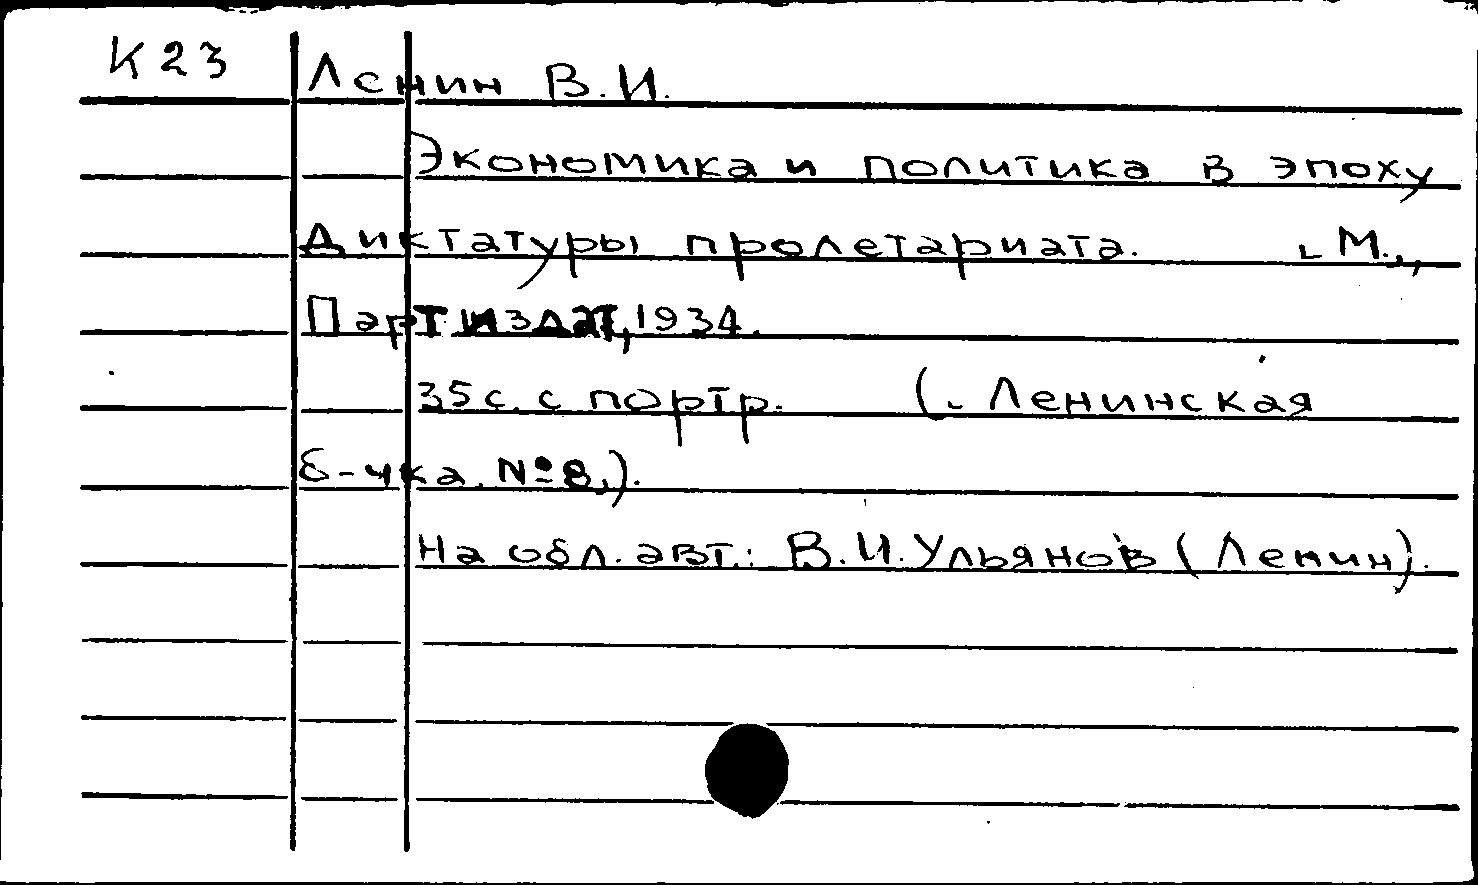 К23
Ленин В.И.
Экономика и политика в эпоху
диктатуры пролетариата. М.,
Партиздат, 1934.
35с. с портр. (Ленинская
б-чка. № 8,).
На обл. авт.: В.И. Ульянов (Ленин).